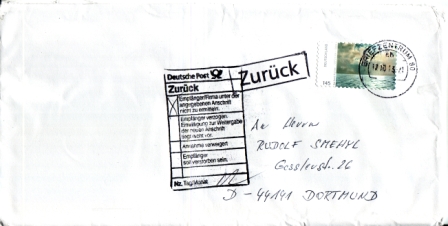 Deutsche Post
Zurück
Empfänger/Firma unter der
angegebenen Anschrift
nicht zu ermitteln.
Empfänger verzogen.
Einwilligung zur Weitergabe
der neuen Anschrift
liegt nicht vor.
Annahme verweigert
Empfänger
soll verstorben sein.
Nr. Tag/Monat
Zurück
145
BRIEFZENTRUM 80
An Herrn
RUDOLF SMEHYL
26
D - 44141 DORTMUND